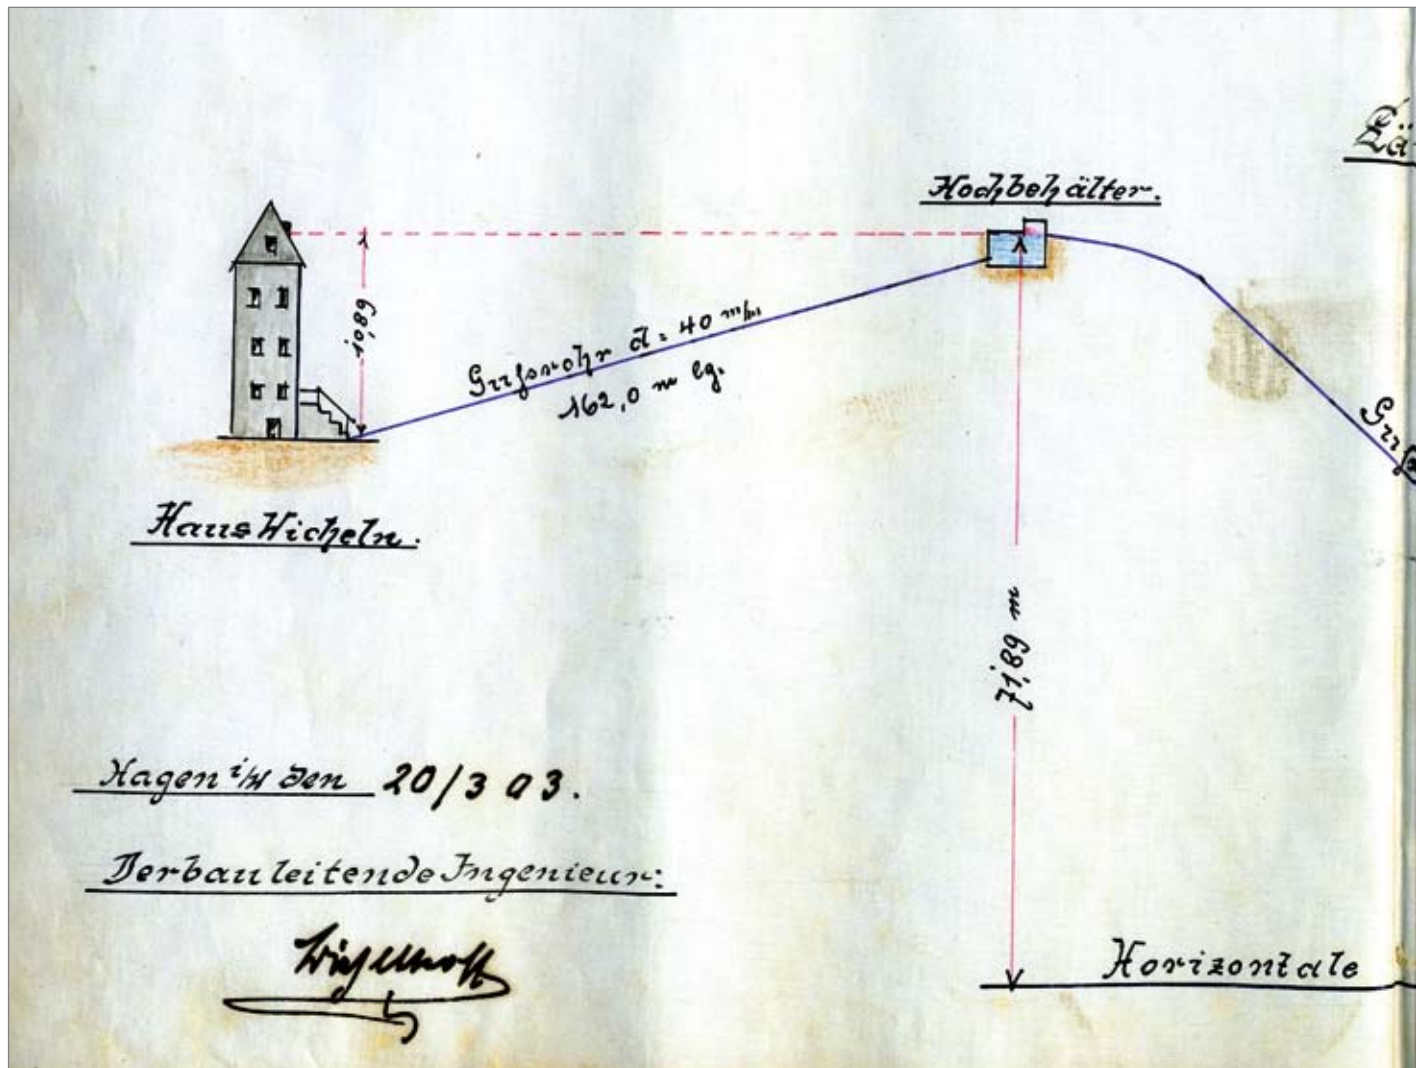 Hochbehälter.
10,89
Gussrohr d = 40 m/m
162,0 m lg.
Haus Wicheln.
71,89 m
Hagen i/W den 20/3 03.
Der bauleitende Ingenieur:
Horizontale